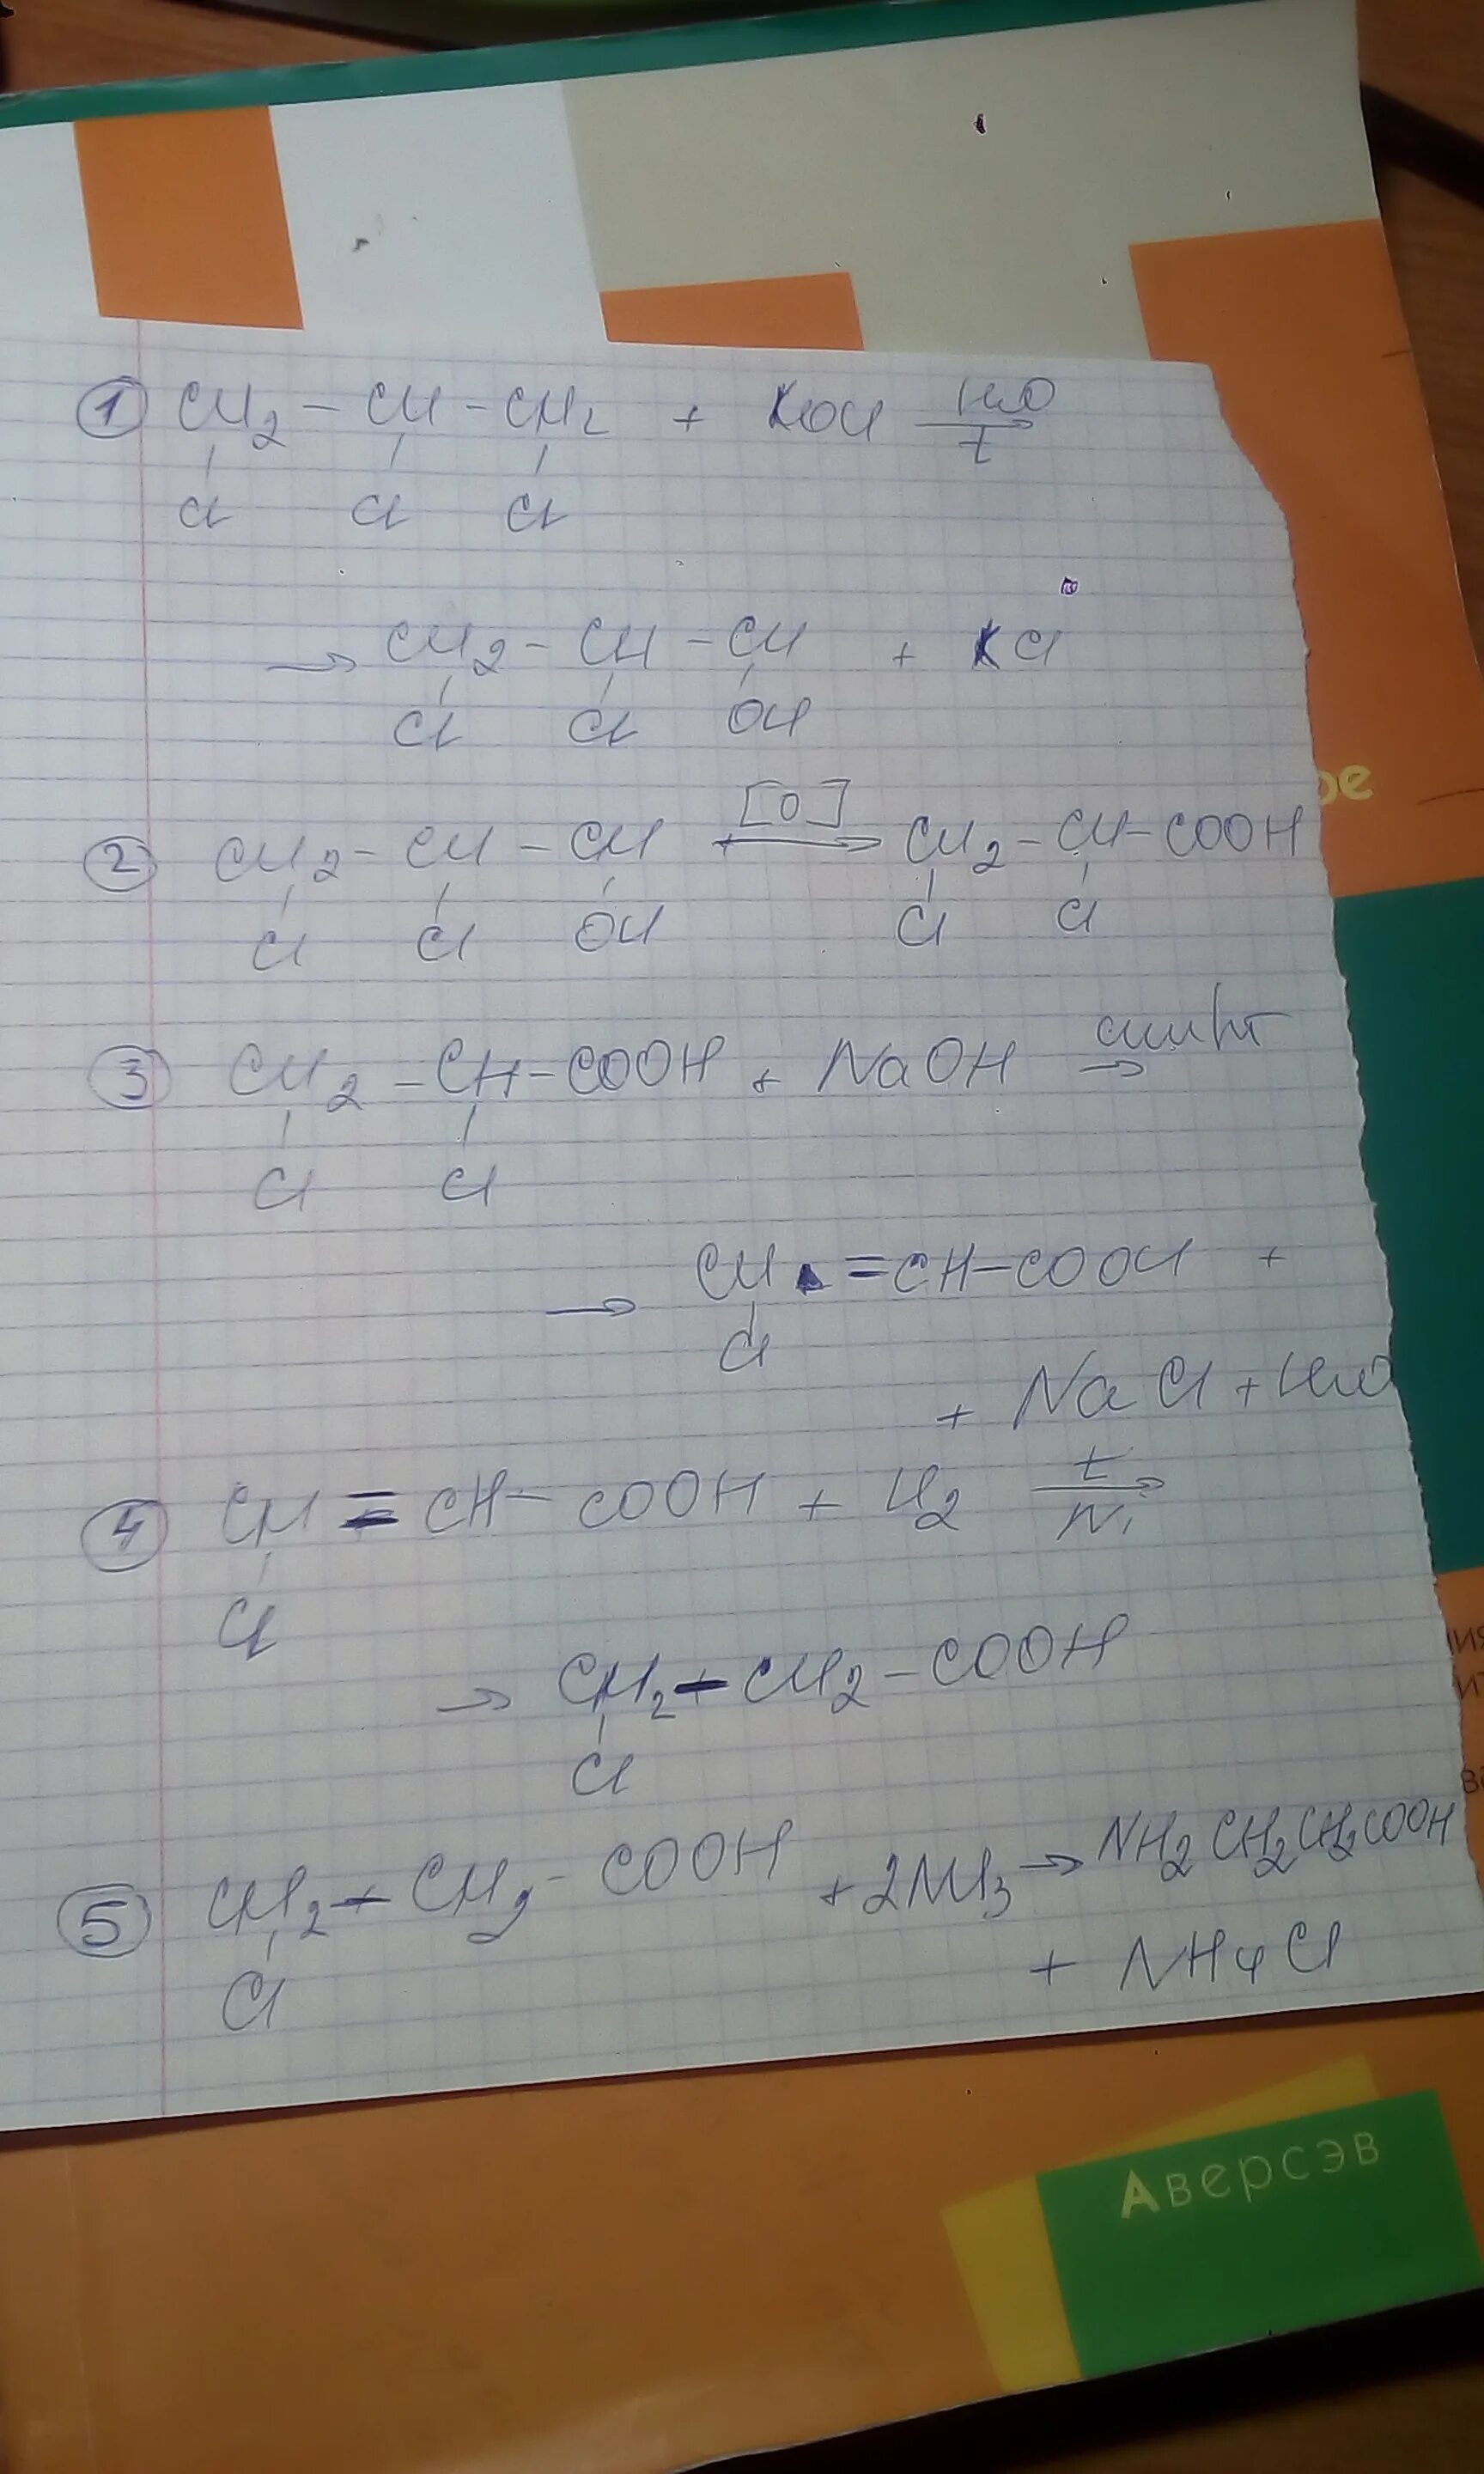 ① CH2 - CH - CH2 + KOH H2O
t
Cl Cl Cl
→ CH2 - CH - CH + KCl
Cl Cl OH
② CH2 - CH - CH [O] → CH2 - CH - COOH
Cl Cl OH Cl Cl
③ CH2 - CH - COOH + NaOH →
Cl Cl
→ CH = CH - COOH +
Cl
+ NaCl + H2O
④ CH = CH - COOH + H2 t →
Ni
Cl
→ CH2 - CH2 - COOH
Cl
⑤ CH2 - CH2 - COOH + 2NH3 → NH2CH2CH2COOH
Cl
+ NH4Cl
ое
ия
Аверсэв